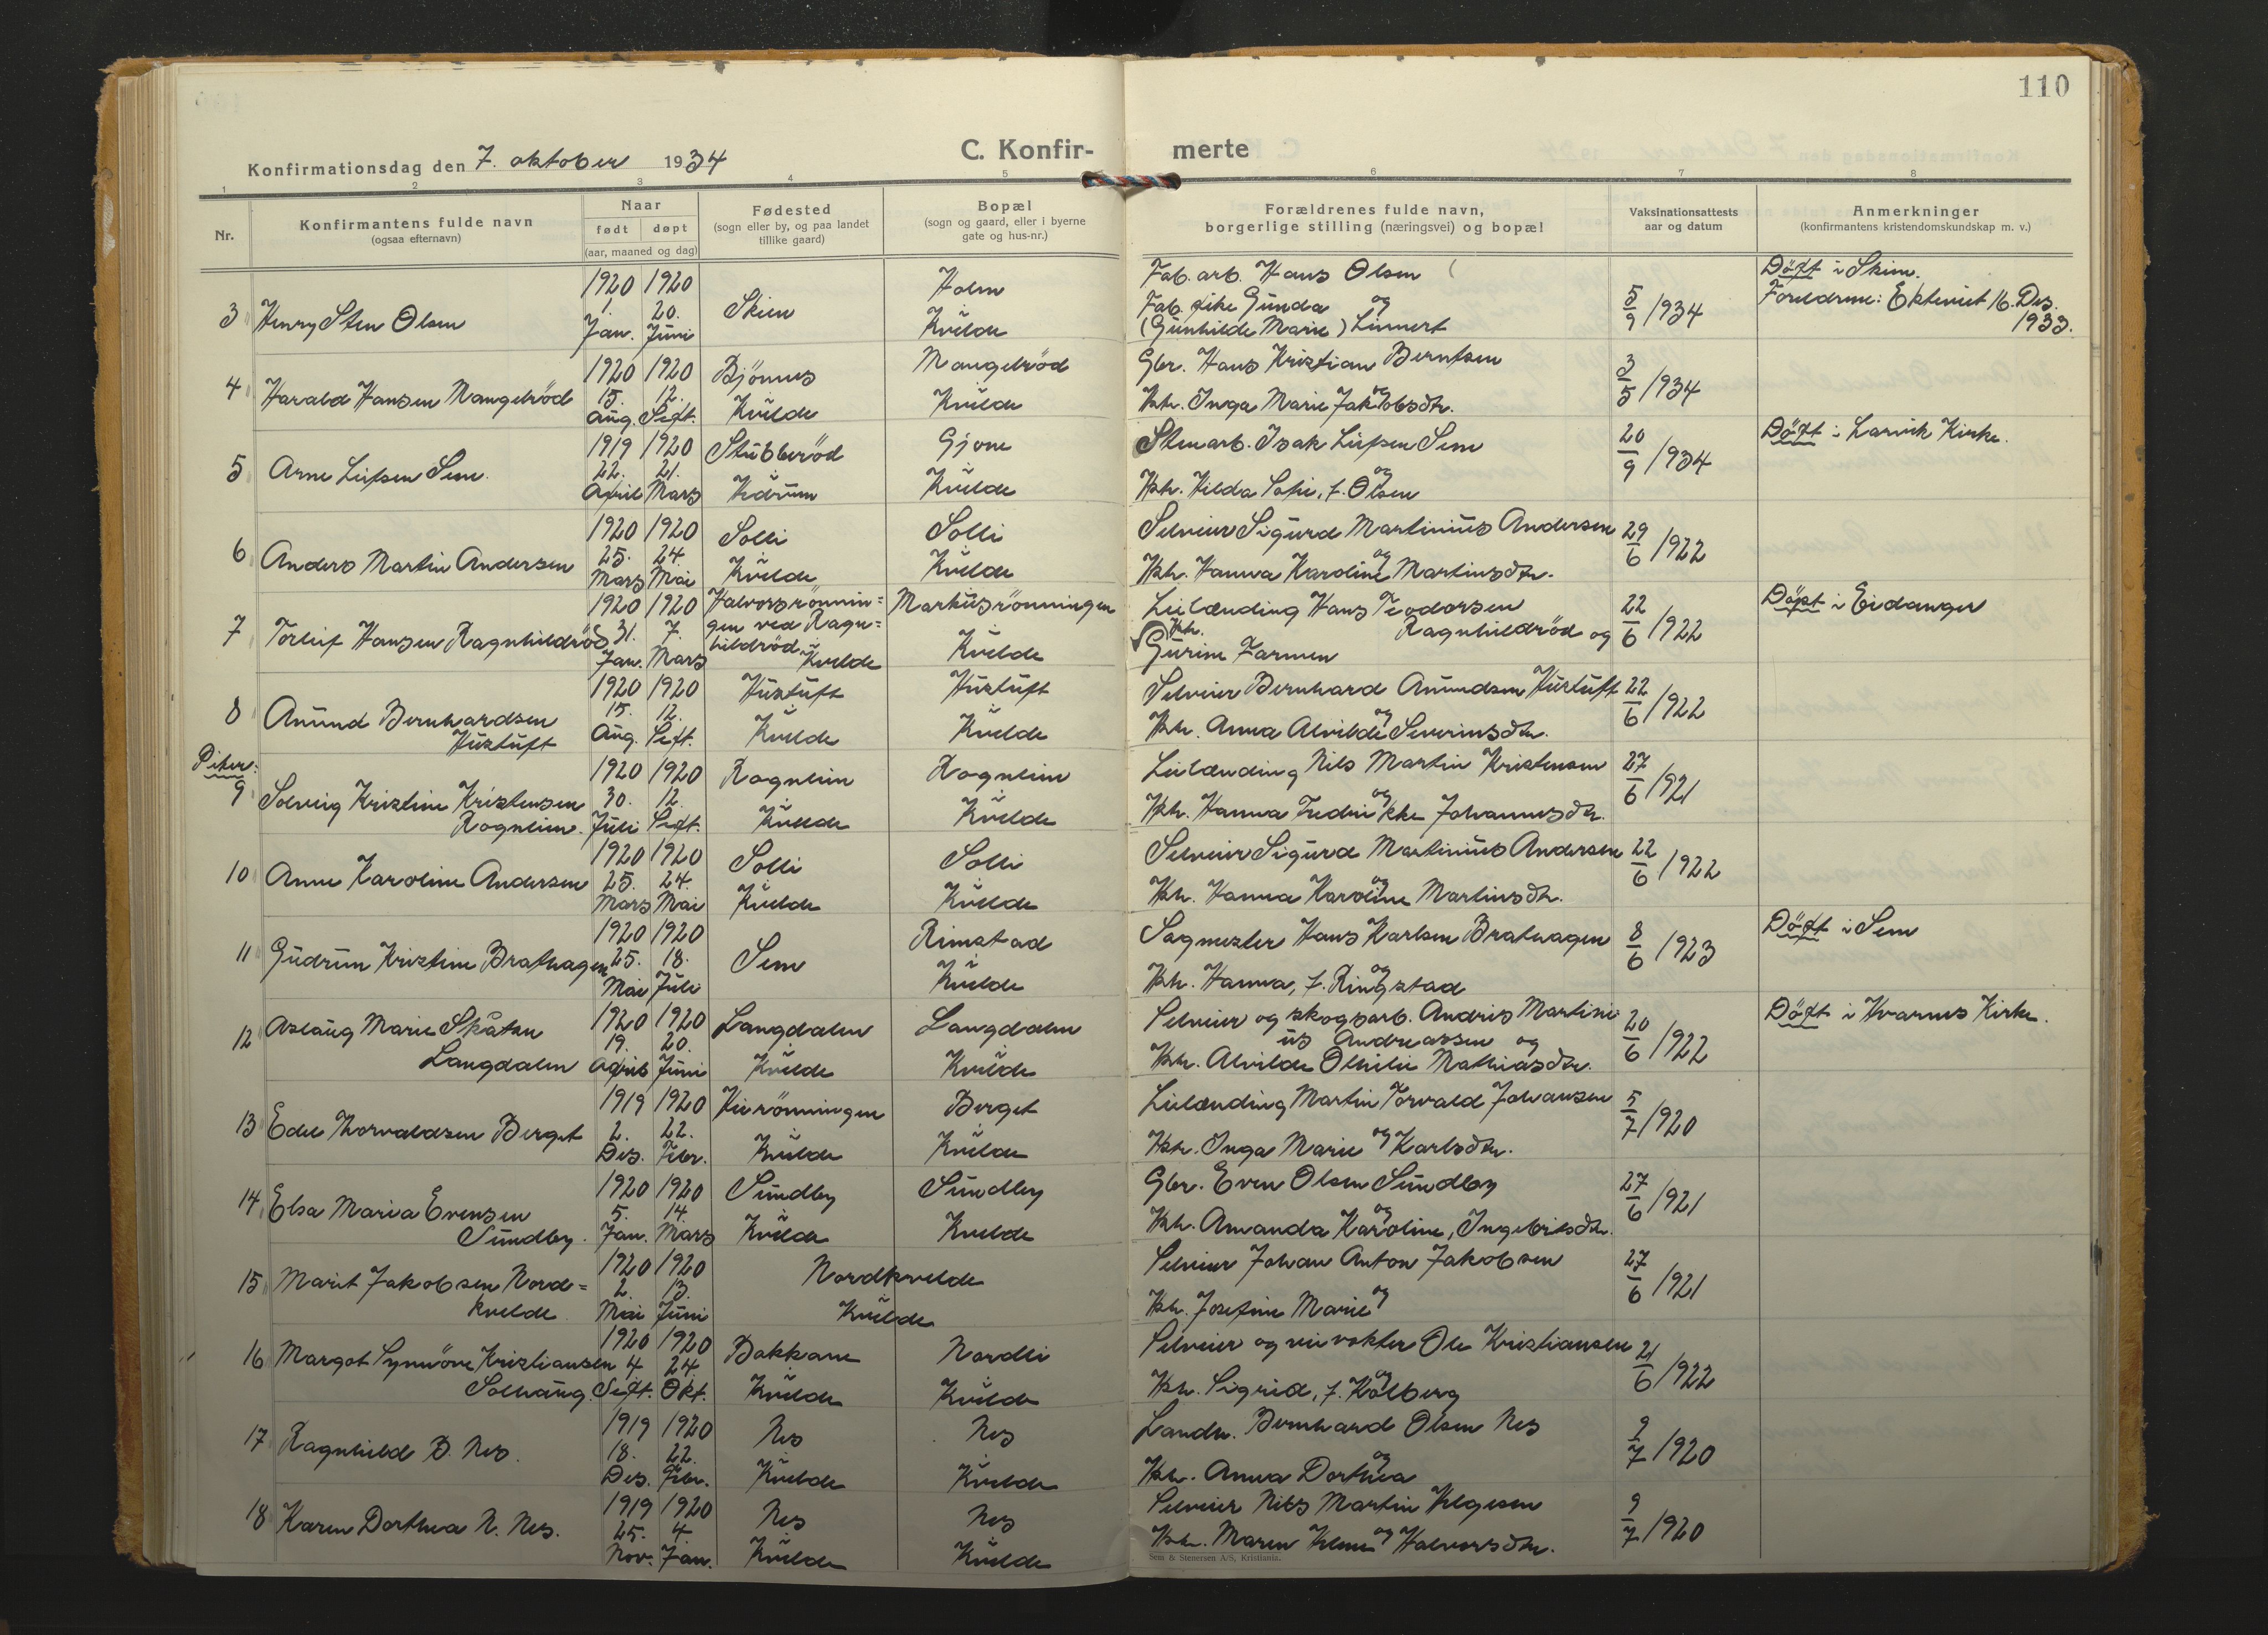 110
Konfirmationsdag den 7. oktober 1934
C. Konfir- merte
1 2 3 4 5 6 7 8
Nr.
Konfirmantens fulde navn
(ogsaa efternavn)
Naar
født døpt
(aar, maaned og dag)
Fødested
(sogn eller by, og paa landet
tillike gaard)
Bopæl
(sogn og gaard, eller i byerne
gate og hus-nr.)
Forældrenes fulde navn,
borgerlige stilling (næringsvei) og bopæl
Vaksinationsattests
aar og datum
Anmerkninger
(konfirmantens kristendomskundskap m. v.)
1920 1920 Holm Fab. arb. Hans Olsen Döpt i Skien.
3 Henry Sten Olsen 1. 20. Skien Fab. pike Gunda og 5/9 1934 Foreldrene: Ekteviet 16. Des.
Jan. Juni Kvelde (Gunhilde Marie) Linnert 1933.
1920 1920 Bjönnes Mangelröd Gbr. Hans Kristian Berntsen
4 Harald Hansen Mangelröd 15. 12. 3/5 1934
Aug. Sept. Kvelde Kvelde Hstr. Inga Marie Jakobsdtr. og
1919 1920 Stubberöd Gjone Stenarb. Isak Leifsen Sem Döpt i Larvik Kirke.
5 Arne Leifsen Sem. 22. 21. 20/9 1934
April Mars Hedrum Kvelde Hstr. Hilda Sofie, f. Olsen og
1920 1920 Solli Solli Selveier Sigurd Martinius Andersen
6 Anders Martin Andersen 25. 24. 29/6 1922
Mars Mai Kvelde Kvelde Hstr. Hanna Karoline Martinsdtr. og
1920 1920 Halvorsrönnin= Markusrönningen Leilænding Hans Teodorsen Döpt i Eidanger
7 Torleif Hansen Ragnhildröd 31. 7. gen ved Ragn= Hstr. Ragnhildröd og 22/6 1922
Jan. Mars hildröd. Kvelde Kvelde Gurine Larsen
1920 1920 Hustuft Hustuft Selveier Bernhard Amundsen Hustuft
8 Amund Bernhardsen 15. 12. 22/6 1922
Hustuft Aug. Sept. Kvelde Kvelde Hstr. Anna Alvilde Severinsdtr. og
Piker:
1920 1920 Rognlien Rognlien Leilænding Nils Martin Kristensen
9 Solveig Kristine Kristensen 30. 12. 27/6 1921
Rognlien. Juli Sept. Kvelde Kvelde Hstr. Hanna Fredrikke Johannesdtr. og
1920 1920 Solli Solli Selveier Sigurd Martinius Andersen
10 Anne Karoline Andersen 25. 24. 22/6 1922
Mars Mai Kvelde Kvelde Hstr. Hanna Karoline Martinsdtr. og
1920 1920 Rimstad Sagmester Hans Karlsen Brathagen Döpt i Sem
11 Gudrun Kristine Brathagen 25. 18. Sem 8/6 1923
Mai Juli Kvelde Hstr. Hanna, f. Ringstad og
12 Aslaug Marie Skåtan 1920 1920 Langdalen Langdalen Selveier og skogsarb. Andris Martini Döpt i Hvarnes Kirke.
19. 20. us Andreassen og 20/6 1922
Langdalen April Juni Kvelde Kvelde Hstr. Alvilde Othilie Mathiasdtr.
1919 1920 Berget Leilænding Martin Torvald Johansen
13 Edel Thorvaldsen Berget 2. 22. 5/7 1920
Des. Febr. Kvelde Kvelde Hstr. Inga Marie Karlsdtr. og
1920 1920 Sundby Sundby Gbr. Even Olsen Sundby
14 Elsa Maria Evensen 5. 14. 27/6 1921
Sundby. Jan. Mars Kvelde Kvelde Hstr. Amanda Karoline, Ingebritsdtr. og
1920 1920 Nordkvelde Selveier Johan Anton Jakobsen
15 Marit Jakobsen Nord= 2. 13. 27/6 1921
kvelde. Mai Juni Kvelde Hstr. Josefine Marie og
1920 1920 Bakkane Nordli Selveier og veivokter Ole Kristiansen
16 Margot Synnöve Kristiansen 4 24. 21/6 1922
Solhaug. Sept. Okt. Kvelde Kvelde Hstr. Sigrid, f. Kålberg og
1919 1920 Nes Nes Landh. Bernhard Olsen Nes
17 Ragnhild B. Nes. 18. 22. 9/7 1920
Des. Febr. Kvelde Kvelde Hstr. Anna Dorthea og
1919 1920 Nes Nes Selveier Nils Martin Helgesen
18 Karen Dorthea N. Nes. 25. 4. 9/7 1920
Nov. Jan. Kvelde Kvelde Hstr. Maren Helene Halvorsdtr. og
Sem & Stenersen A/S, Kristiania.